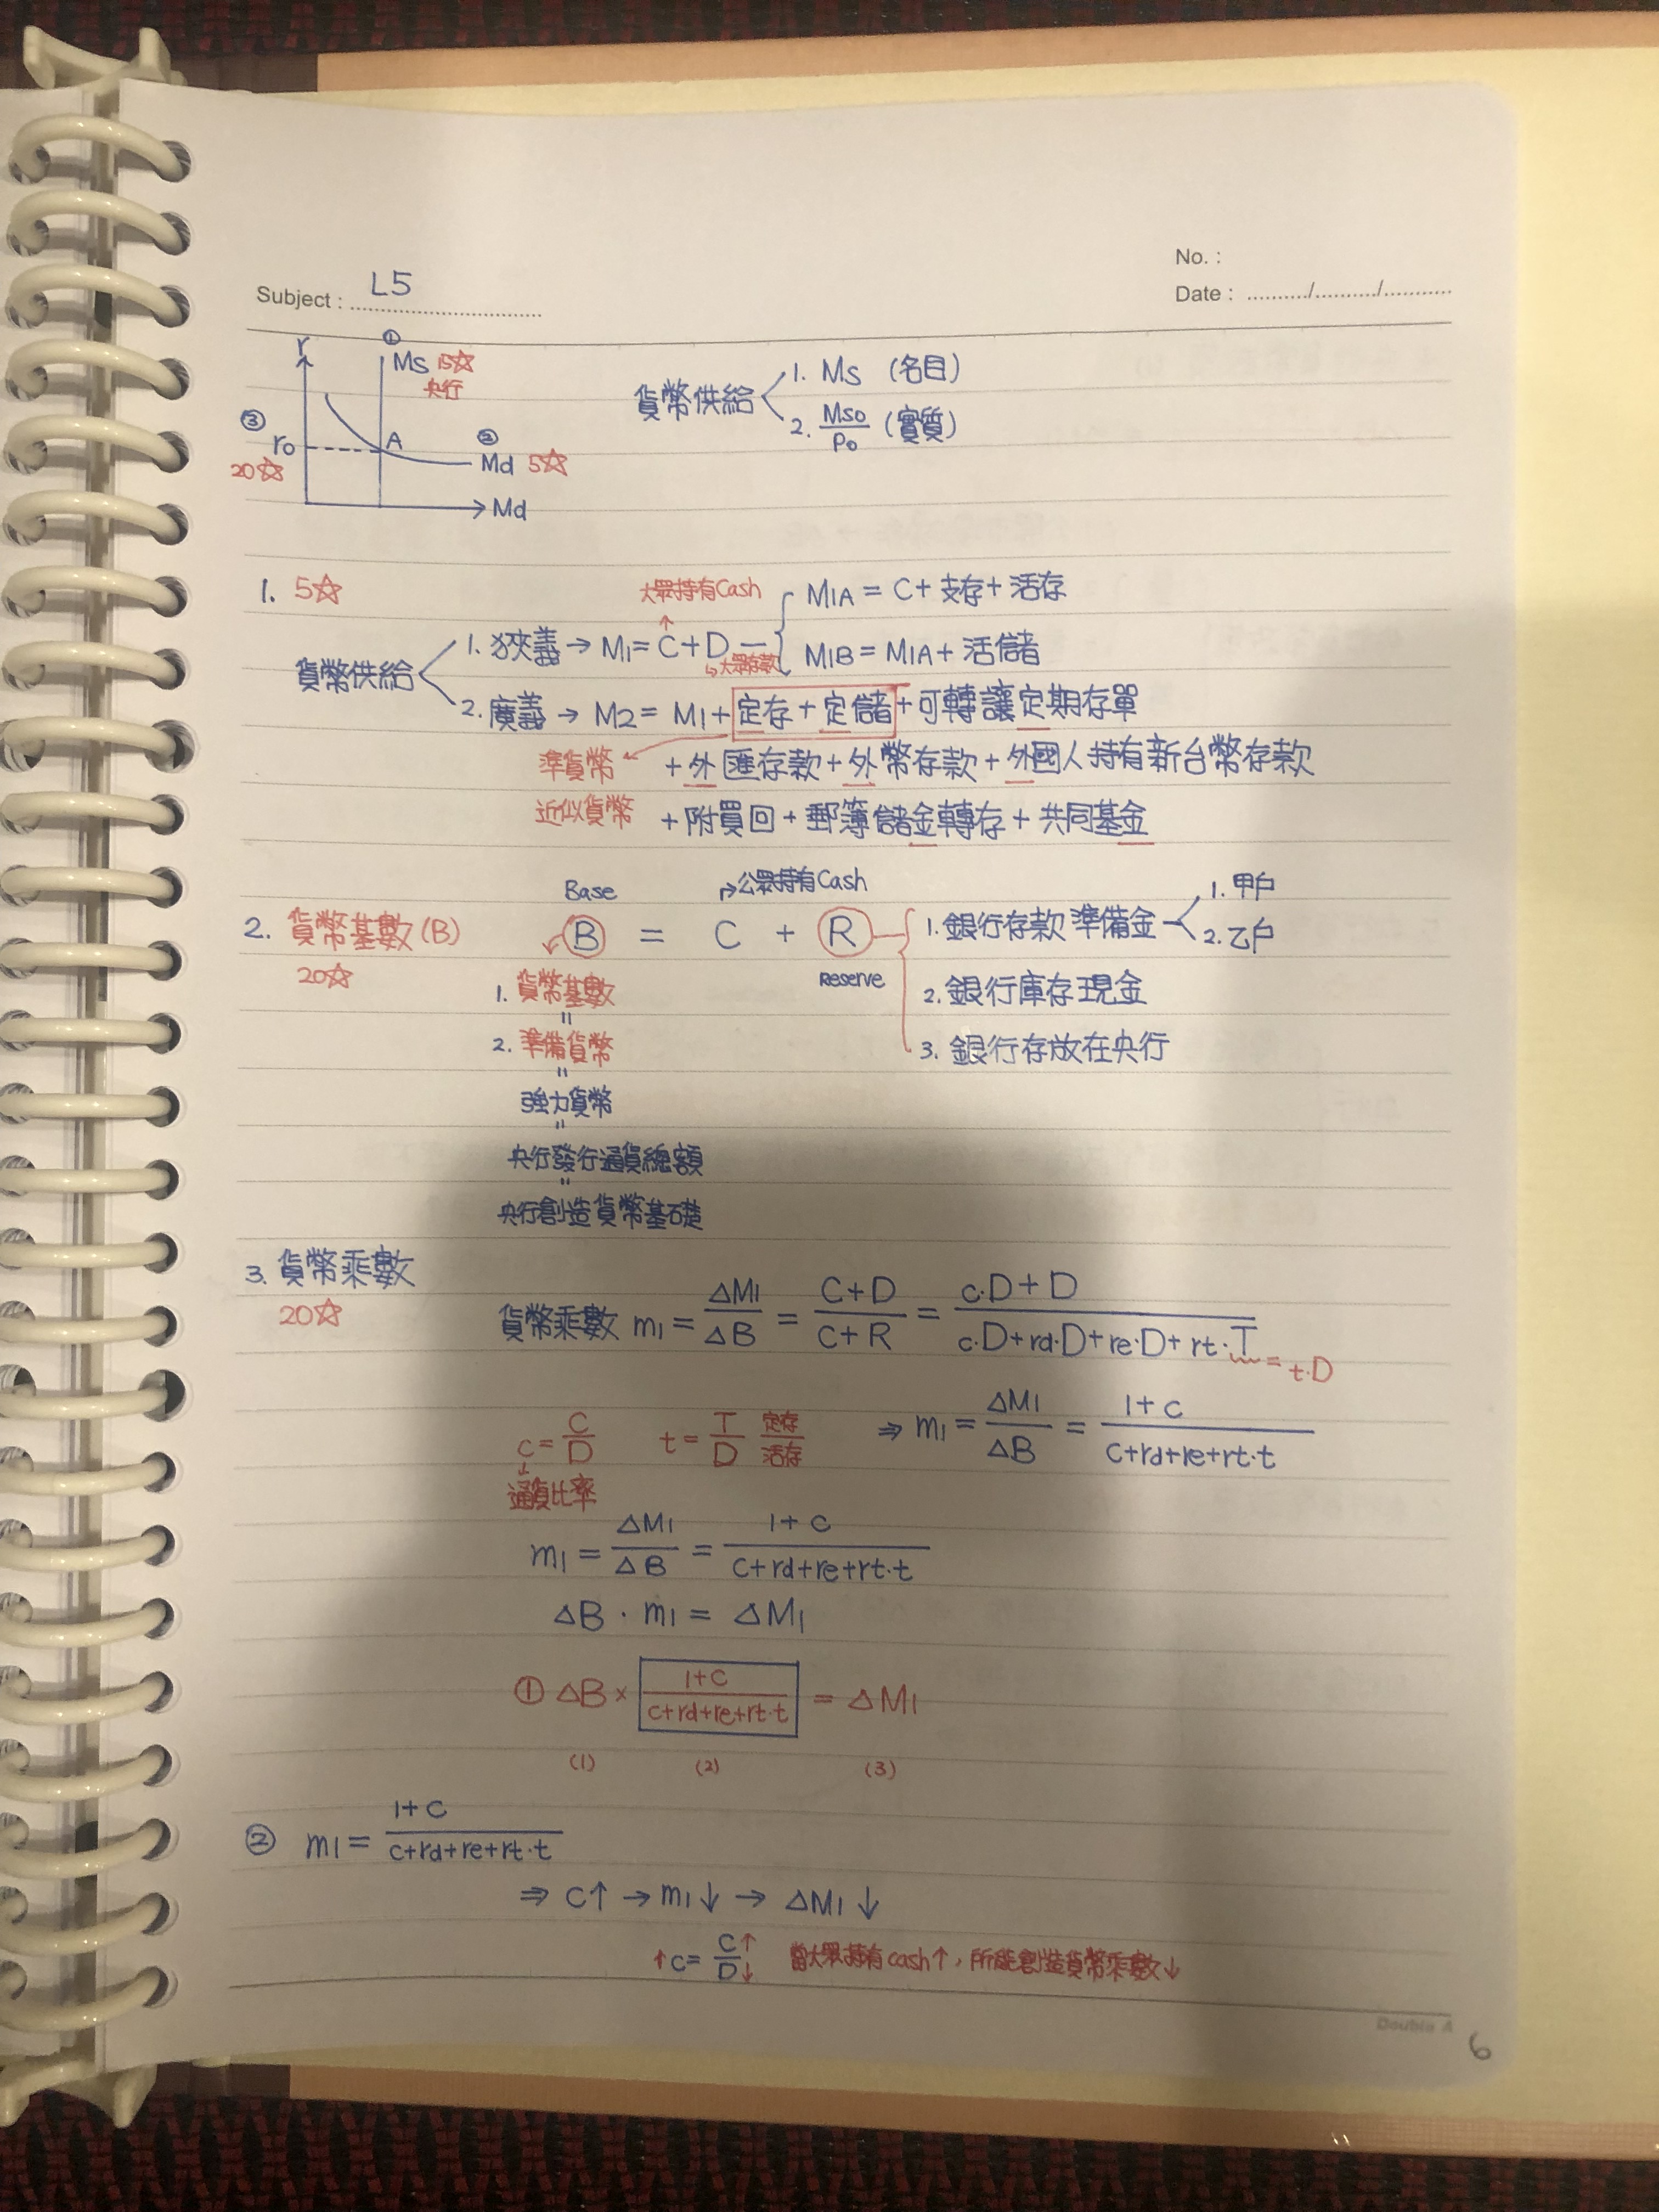 No. :
Subject : L5
Date : ........../........../...........
r
①
Ms 15☆
央行
③
r0
20☆
A
②
Md 5☆
Md
貨幣供給
1. Ms (名目)
2. Ms0/P0 (實質)
1. 5☆
大眾持有Cash
貨幣供給
1. 狹義 → M1 = C + D
大眾存款
M1A = C + 支存 + 活存
M1B = M1A + 活儲
2. 廣義 → M2 = M1 + 定存 + 定儲 + 可轉讓定期存單
準貨幣
+ 外匯存款 + 外幣存款 + 外國人持有新台幣存款
近似貨幣
+ 附買回 + 郵簿儲金轉存 + 共同基金
Base
公眾持有Cash
2. 貨幣基數(B)
B = C + R
20☆
Reserve
1. 銀行存款準備金
1. 甲戶
2. 乙戶
2. 銀行庫存現金
3. 銀行存放在央行
1. 貨幣基數
=
2. 準備貨幣
=
強力貨幣
=
央行發行通貨總額
=
央行創造貨幣基礎
3. 貨幣乘數
20☆
貨幣乘數 m1 = ΔM1/ΔB = C+D/C+R = c·D+D/c·D+rd·D+re·D+rt·T
= t·D
c = C/D
通貨比率
t = T/D 定存/活存
⇒ m1 = ΔM1/ΔB = 1+c/c+rd+re+rt·t
m1 = ΔM1/ΔB = 1+c/c+rd+re+rt·t
ΔB · m1 = ΔM1
① ΔB × 1+c/c+rd+re+rt·t = ΔM1
(1) (2) (3)
② m1 = 1+c/c+rd+re+rt·t
⇒ C↑ → m1↓ → ΔM1↓
↑c = C↑/D↓ 當大眾持有cash↑, 所能創造貨幣乘數↓
Double A
6